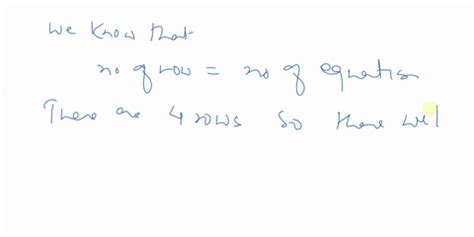 We know that
no of row = no of equation
There are 4 rows so there wel